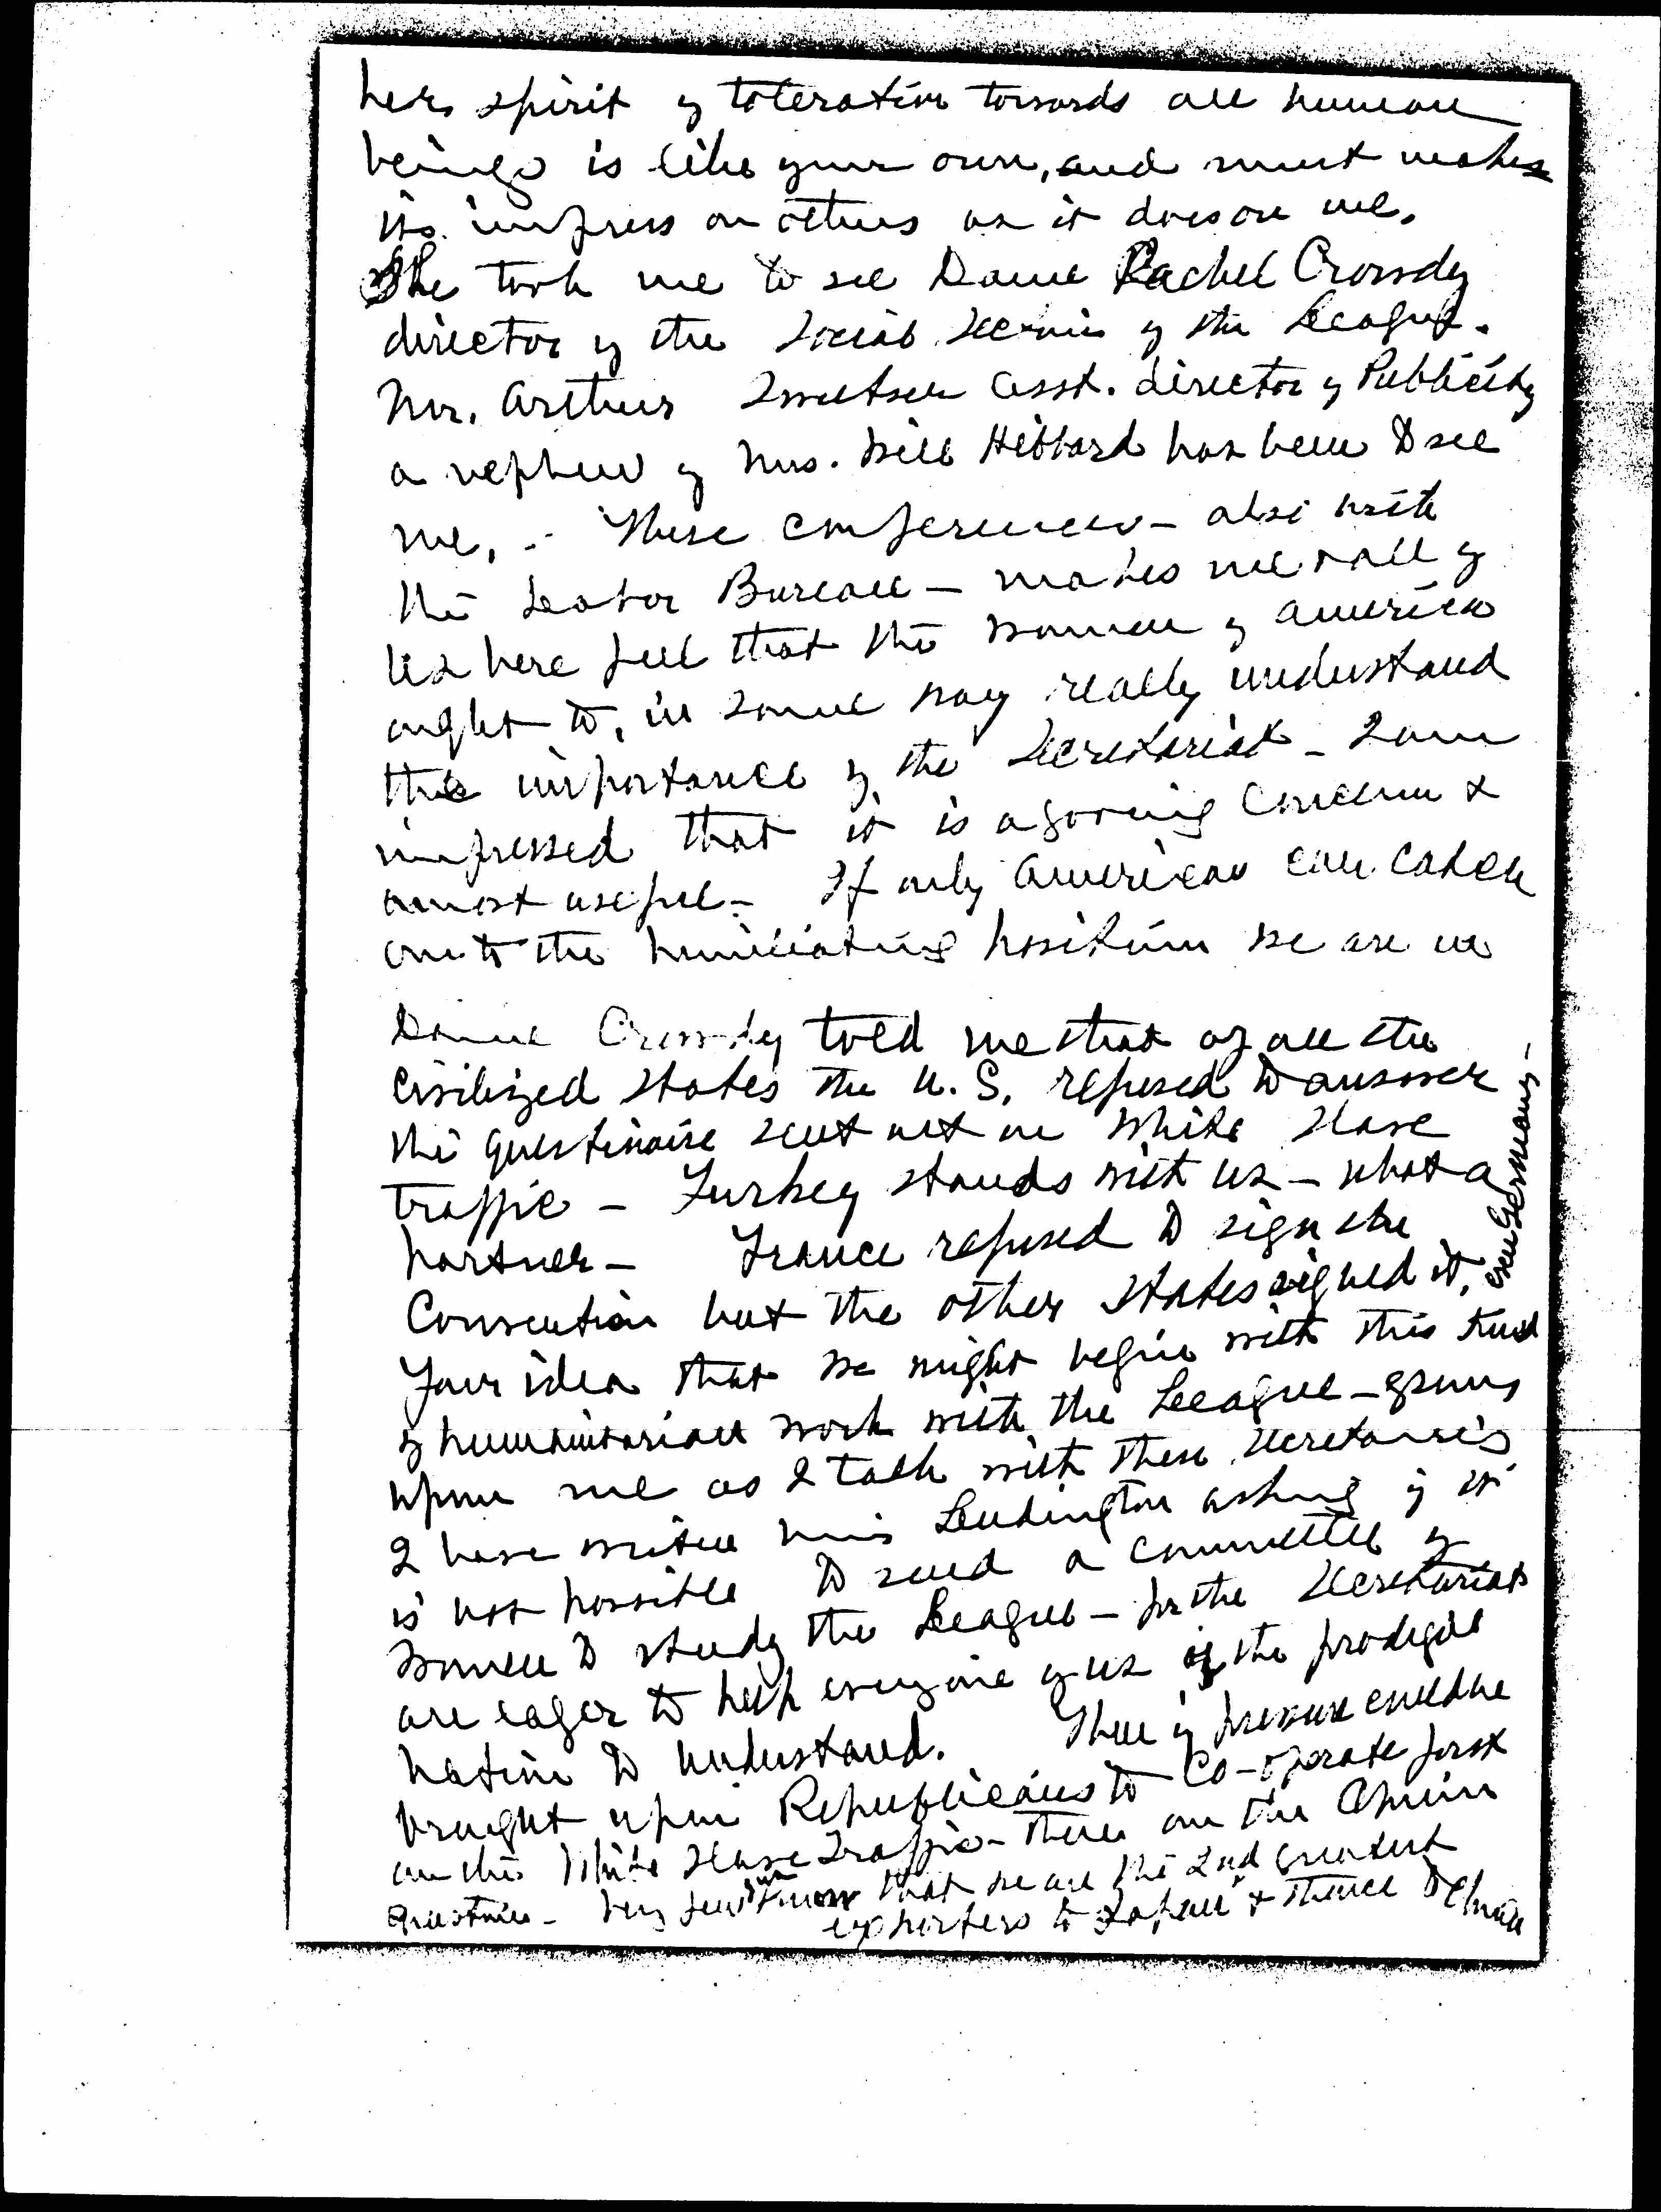 her spirit of toleration towards all human
beings is like your own, and must make
its impress on others as it does on me.
She took me to see Dame Rachel Crowdy
director of the Social Service of the League.
Mr. Arthur Sweetser Asst. director of Publicity
a nephew of Mrs. Will Hibbard has been to see
me. - These conferences - also with
the Labor Bureau - makes me & all of
us here feel that the women of America
ought to, in some way really understand
the importance of the Secretariat - I am
impressed that it is a going concern &
a most useful - If only Americans can catch
on to the humiliating position we are in
Dame Crowdy told me that of all the
civilized states the U.S. refused to answer
the questinaire sent out on White Slave
traffic - Turkey stands with us - what a
partner - France refused to sign the
Convention but the other states signed it, even Germany -
Your idea that we might begin with this kind
of humanitarian work with the League - grows
upon me as I talk with these secretaries
I have written Miss Ludington asking if it
is not possible to send a committee of
women to study the League - for the Secretariat
are eager to help everyone of us of the prodigal
nation to understand. There is pressure could be
brought upon Republicans to co-operate first
on the White Slave Traffic - then on the Opium
question - Very few know that we are the 2nd greatest
exporters to Japan & thence to China